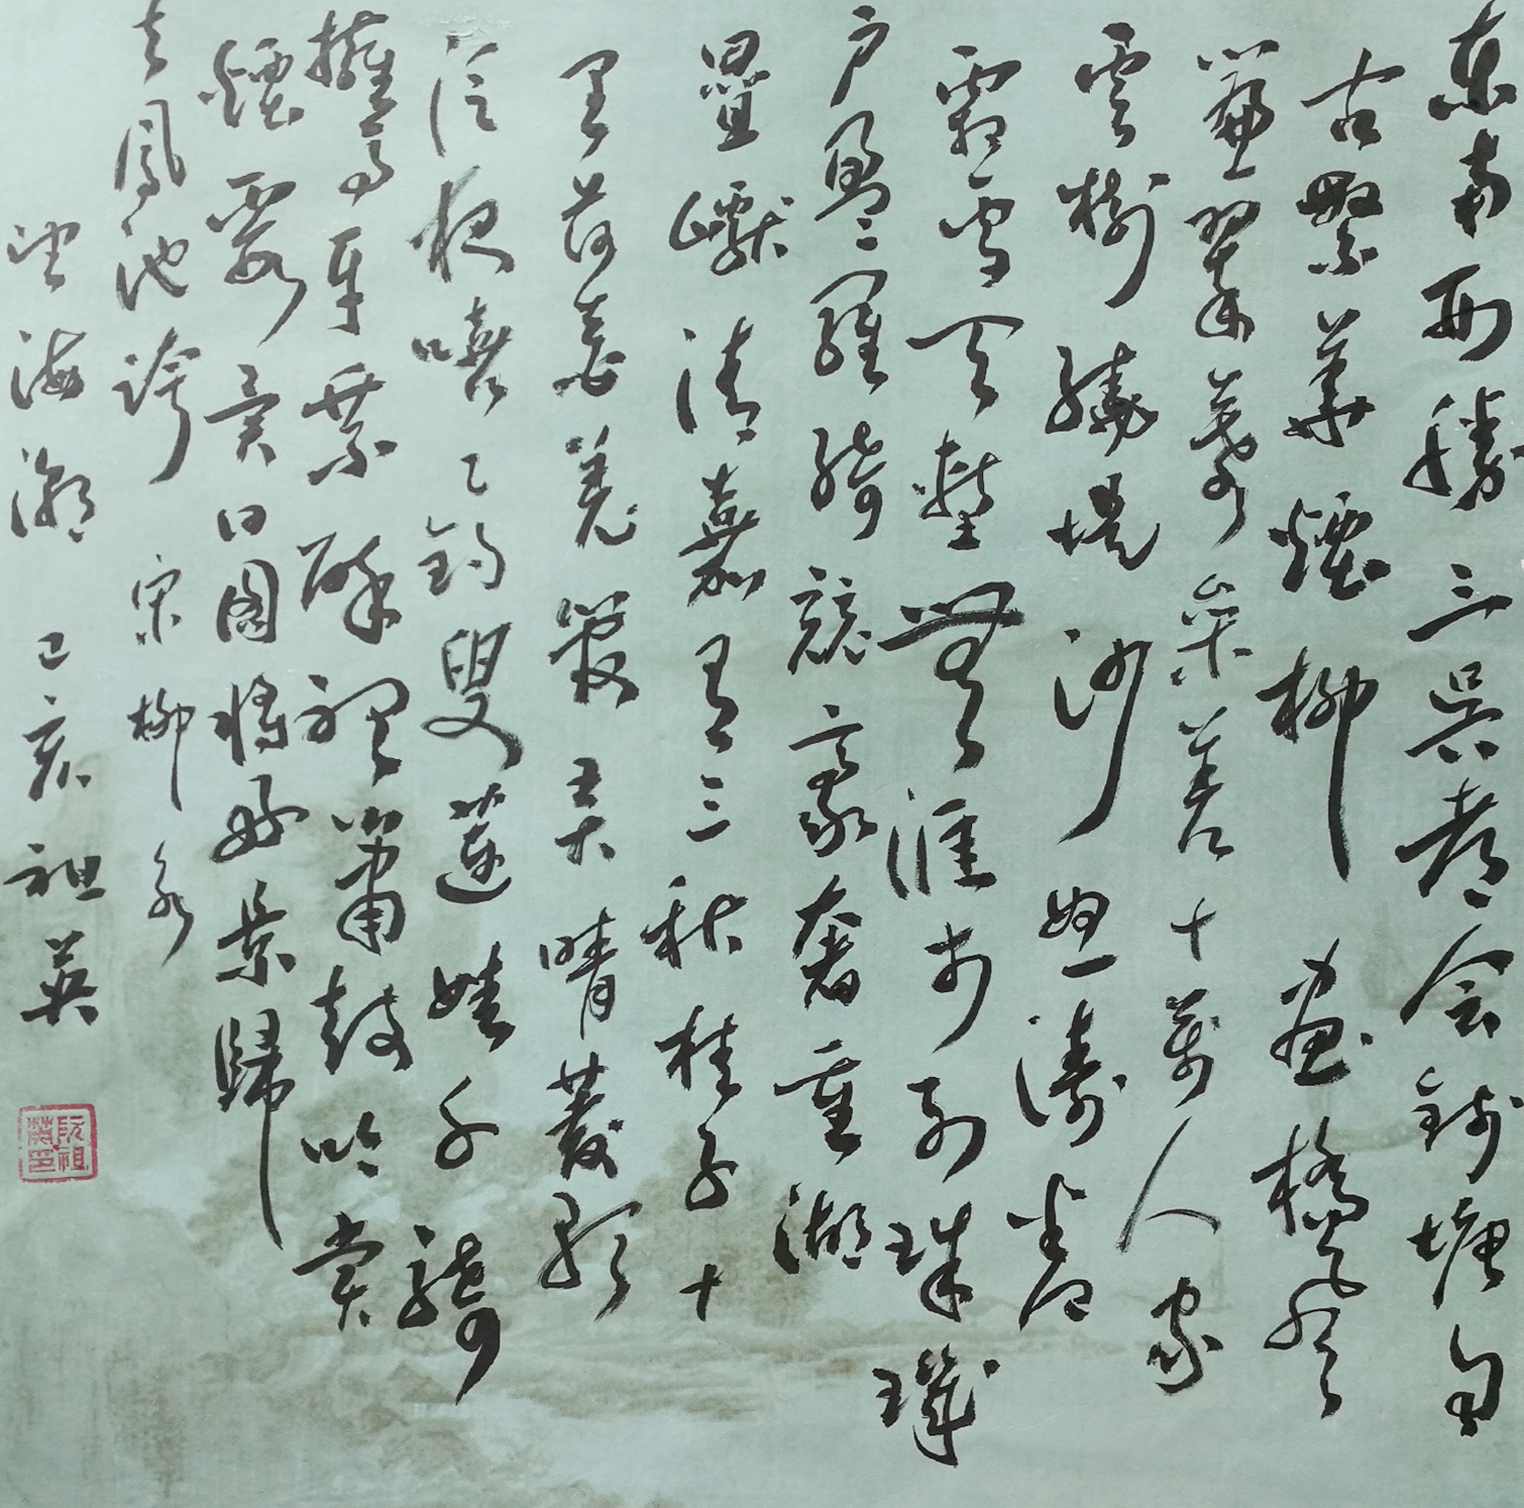 東南形勝三吳都会錢塘自
古繁華煙柳畫橋風
簾翠幕參差十萬人家
雲樹繞堤沙怒濤卷
霜雪天塹無涯市列珠璣
戶盈羅綺競豪奢重湖
疊巘清嘉有三秋桂子十
里荷花羌管弄晴菱歌
泛夜嘻々釣叟蓮娃千騎
擁高牙乘醉聽簫鼓吟賞
煙霞異日圖將好景歸
去鳳池誇 宋柳永
望海潮 己亥祖英
阮祖英印